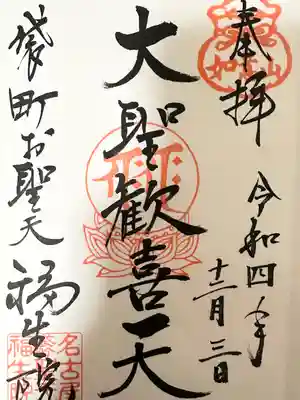 奉拝
令和四年
十二月三日
大聖歓喜天
袋町お聖天
福生院